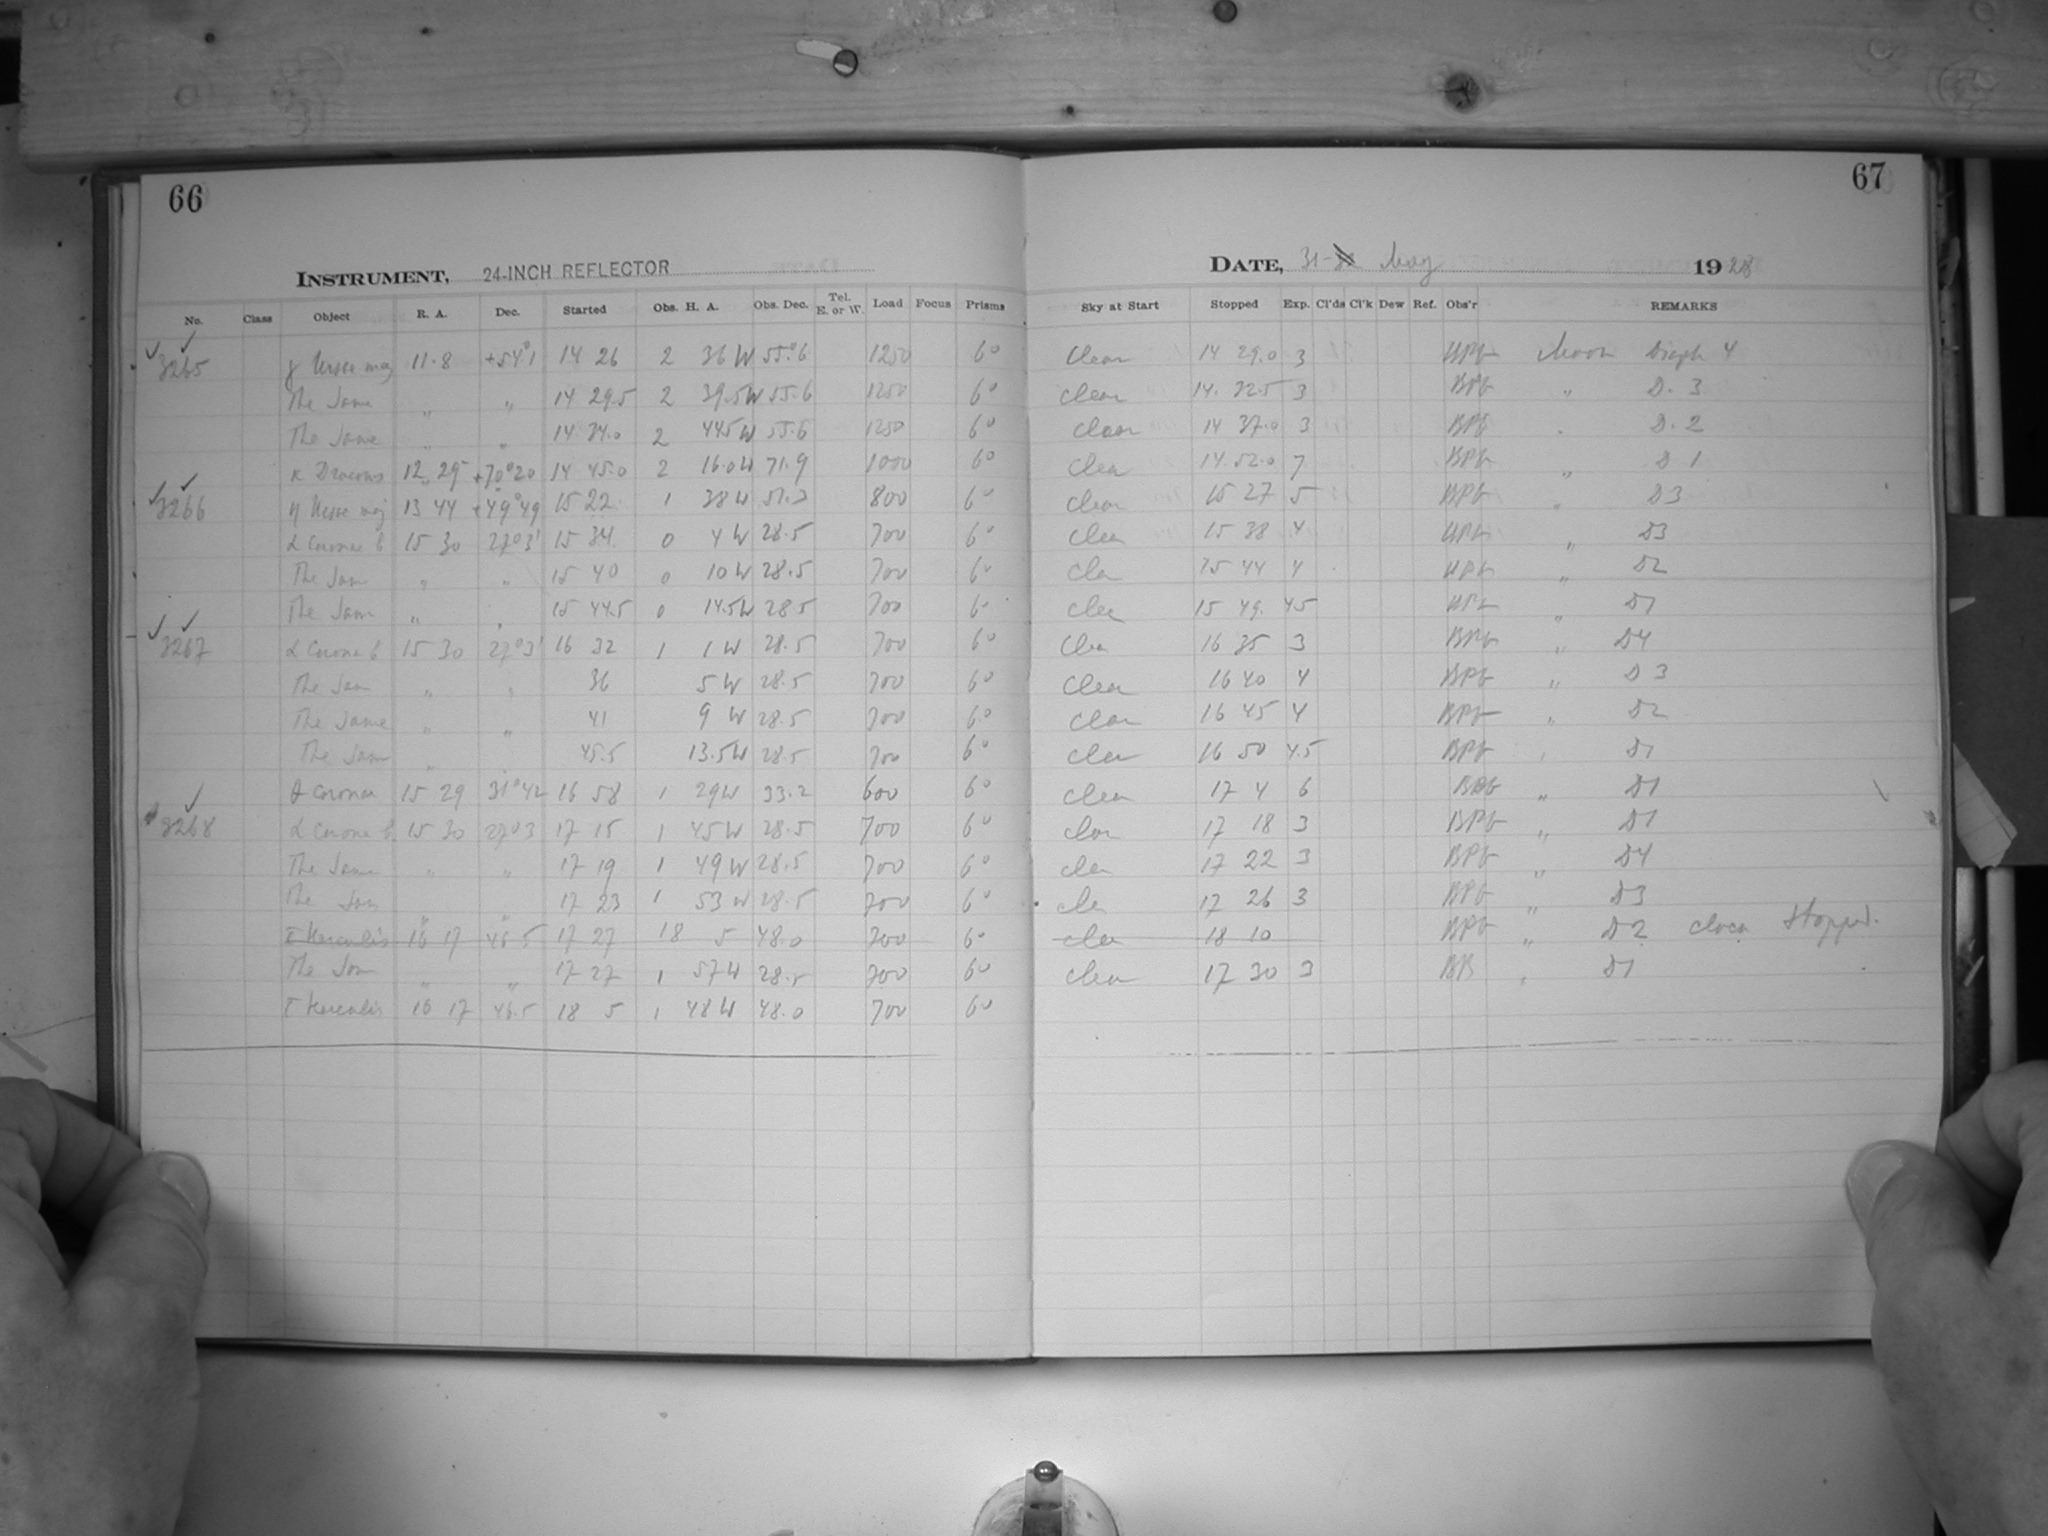 66
67
INSTRUMENT, 24-INCH REFLECTOR
DATE, 31- May 1928
No. Class Object R. A. Dec. Started Obs. H. A. Obs. Dec. Tel. E. or W. Load Focus Prisms Sky at Start Stopped Exp. Cl'ds Cl'k Dew Ref. Obs'r REMARKS
3265 Ursae maj 11.8 +54°1 14 26 2 36 W 55°6 1250 6° Clear 14 29.0 3 BPG Moon Diaph 4
The Same " " 14 29.5 2 39.5W 55.6 1250 6° Clear 14. 32.5 3 BPG " D. 3
The Same " " 14 34.0 2 44.5W 55.6 1250 6° Clear 14 37.0 3 BPG " D. 2
κ Draconis 12 29 +70°20 14 45.0 2 16.0W 71.9 1000 6° Clear 14 52.0 7 BPG " D 1
3266 η Ursae maj 13 44 +49°49 15 22 1 38 W 51.3 800 6° Clear 15 27 5 BPG " D3
α Coronae b 15 30 27°3' 15 34 0 4 W 28.5 700 6° Clear 15 38 4 BPG " D3
The Same " " 15 40 0 10 W 28.5 700 6° Clear 15 44 4 BPG " D2
The Same " " 15 44.5 0 14.5W 28.5 700 6° Clear 15 49. 4.5 BPG " D1
3267 α Corona b 15 30 27°3' 16 32 1 1 W 28.5 700 6° Clear 16 35 3 BPG " D4
The Same " " 36 5 W 28.5 700 6° Clear 16 40 4 BPG " D3
The Same " " 41 9 W 28.5 700 6° Clear 16 45 4 BPG " D2
The Same " " 45.5 13.5W 28.5 700 6° Clear 16 50 4.5 BPG " D1
θ Coronae 15 29 31°42 16 58 1 29W 33.2 600 6° Clear 17 4 6 BPG " D1
3268 α Corona b 15 30 27°3 17 15 1 45W 28.5 700 6° Clear 17 18 3 BPG " D1
The Same " " 17 19 1 49 W 28.5 700 6° Clear 17 22 3 BPG " D4
The Same " " 17 23 1 53 W 28.5 700 6° Clear 17 26 3 BPG " D3
τ Herculis 16 17 46.5 17 27 18 5 48.0 700 6° Clear 18 10 BPG " D2 Stopped.
The Same " " 17 27 1 57W 28.5 700 6° Clear 17 30 3 " D1
τ Herculis 16 17 46.5 18 5 1 48W 48.0 700 6°